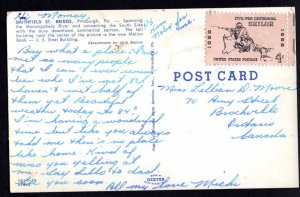 Hi Mommy
SMITHFIELD ST. BRIDGE, Pittsburgh, Pa. — Spanning
the Monongahela River and connecting the South Side
with the busy downtown commercial section. The tall
building near the center of the picture is the new Mellon
Bank — U. S. Steel Building.
Boy what a place. I
met so many people
that I can't even remem-
ber what half of
them yet! Beautiful
weather today 84°
I'm having a wonderful
time but you always
said there's no place
like home. Kind of
miss you yelling at
me. Say hello to dad
see you soon
All my love Micki
CIVIL WAR CENTENNIAL
SHILOH
1862
1962
4¢
UNITED STATES POSTAGE
POST CARD
Miss Lillian D. Moore
10 Amy Street
Brockville
Ontario
Canada.
DEXTER